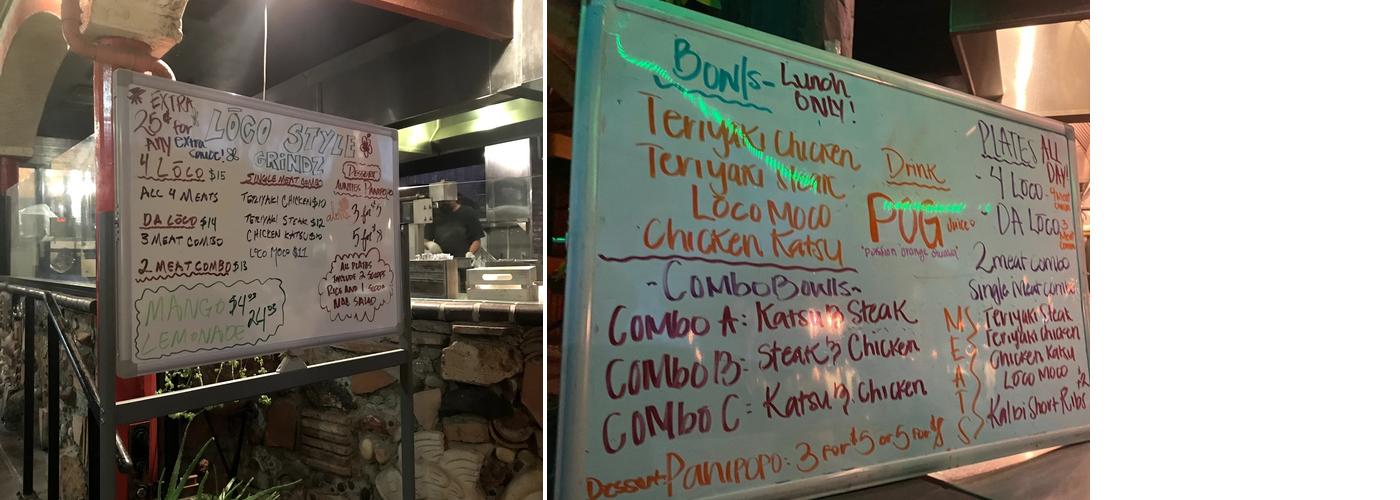 EXTRA
25¢ for
ANY extra
sauce!
LŌCO STYLE
GRINDZ
4 LŌCO $15
ALL 4 MEATS
DA LŌCO $14
3 MEAT COMBO
2 MEAT COMBO $13
SINGLE MEAT COMBO
TERIYAKI CHICKEN
TERIYAKI STEAK $12
CHICKEN KATSU
LOCO MOCO $11
Dessert
AUNTIES PANIPOPO
3 for $5
5 for $8
ALL PLATES
INCLUDE 2 SCOOPS
RICE AND 1 SCOOP
MAC SALAD
MANGO $4
LEMONADE 24
Bowls- Lunch
ONLY!
Teriyaki Chicken
Teriyaki Steak
Loco Moco
Chicken Katsu
-COMBO BOWLS-
COMBO A: Katsu & Steak
COMBO B: Steak & Chicken
COMBO C: Katsu & Chicken
Dessert: Panipopo: 3 for $5 or 5 for $8
Drink
POG Juice
"passion orange guava"
PLATES ALL
DAY!
- 4 LOCO -
- DA LOCO
2 meat combo
Single Meat combo
MEATS
Teriyaki Steak
Teriyaki Chicken
Chicken Katsu
Loco Moco
Kalbi Short Ribs +2